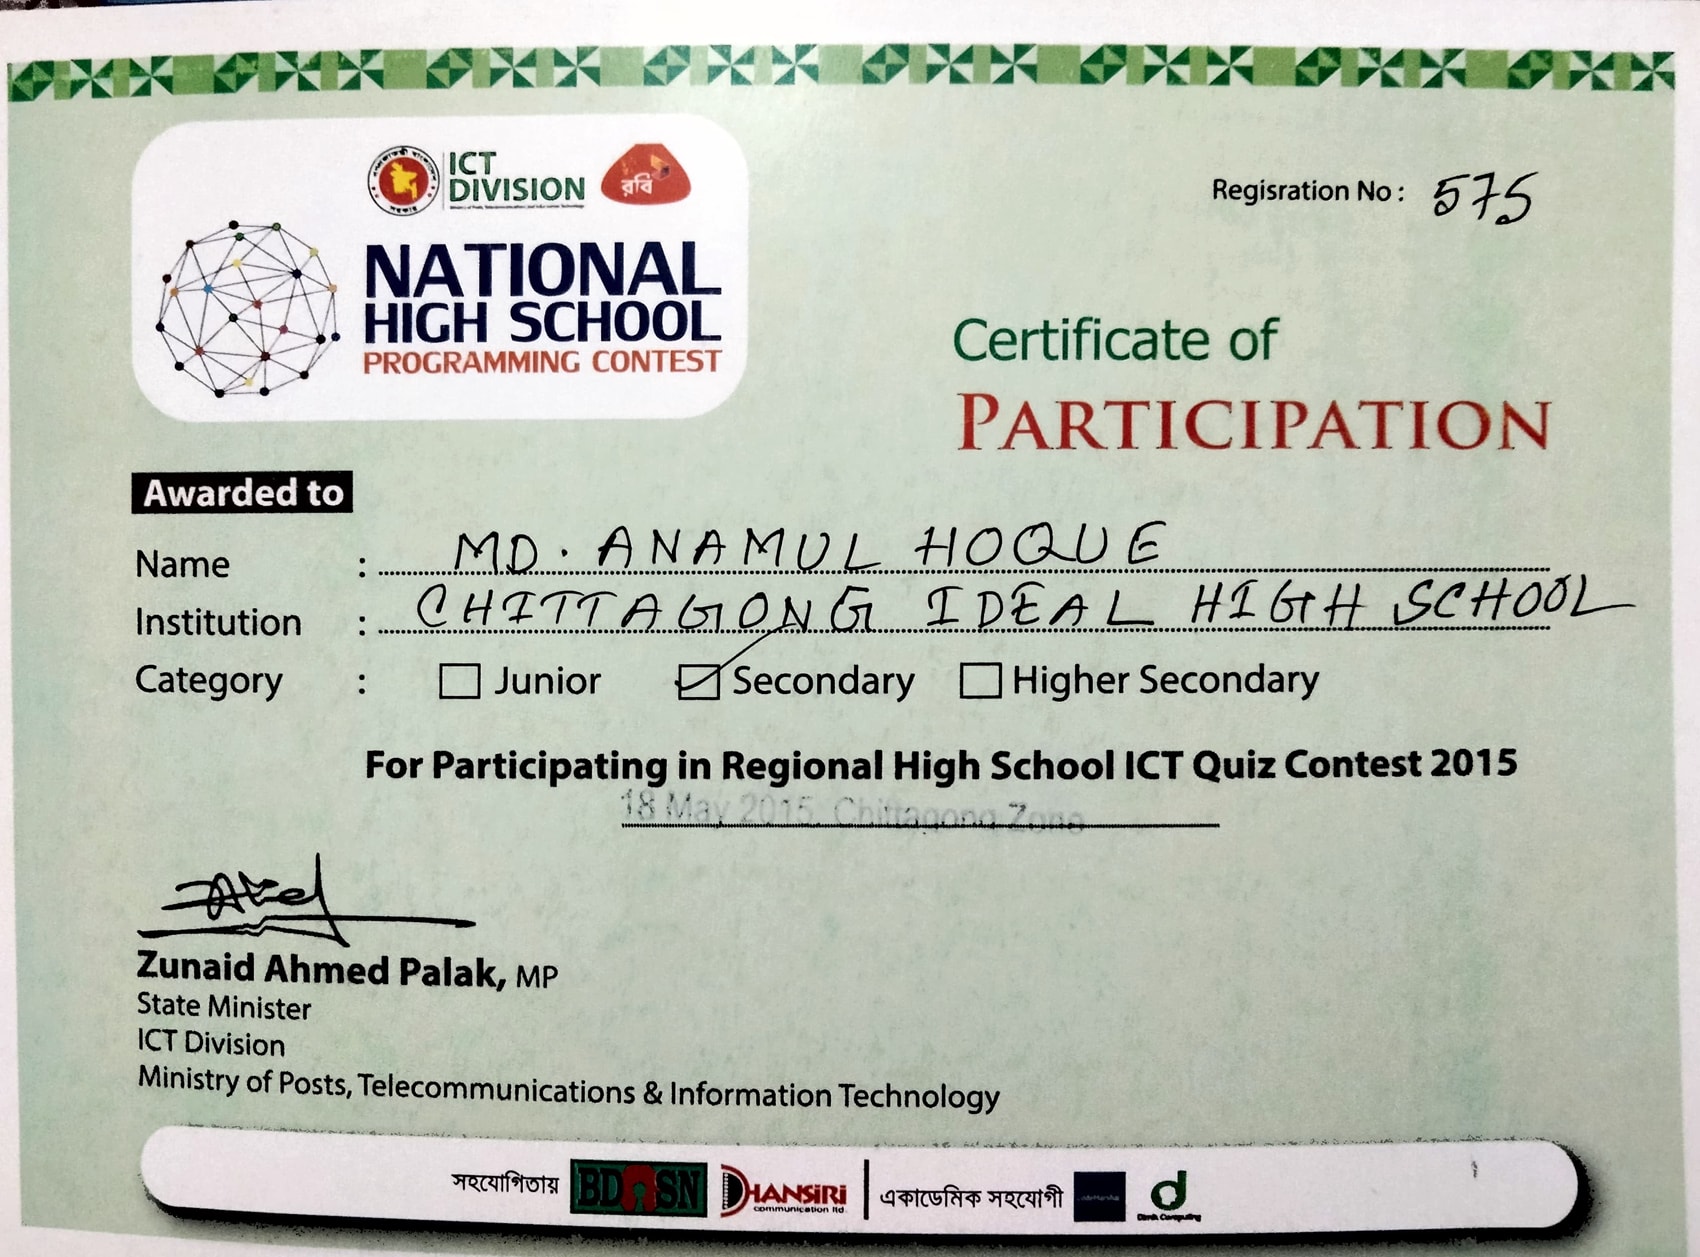 ICT
DIVISION
রবি
NATIONAL
HIGH SCHOOL
PROGRAMMING CONTEST
Regisration No : 575
Certificate of
PARTICIPATION
Awarded to
Name : MD. ANAMUL HOQUE
Institution : CHITTAGONG IDEAL HIGH SCHOOL
Category : Junior Secondary Higher Secondary
For Participating in Regional High School ICT Quiz Contest 2015
18 May 2015, Chittagong Zone
Zunaid Ahmed Palak, MP
State Minister
ICT Division
Ministry of Posts, Telecommunications & Information Technology
সহযোগিতায় BDOSN DHANSiRi communication ltd. একাডেমিক সহযোগী Dimik Computing